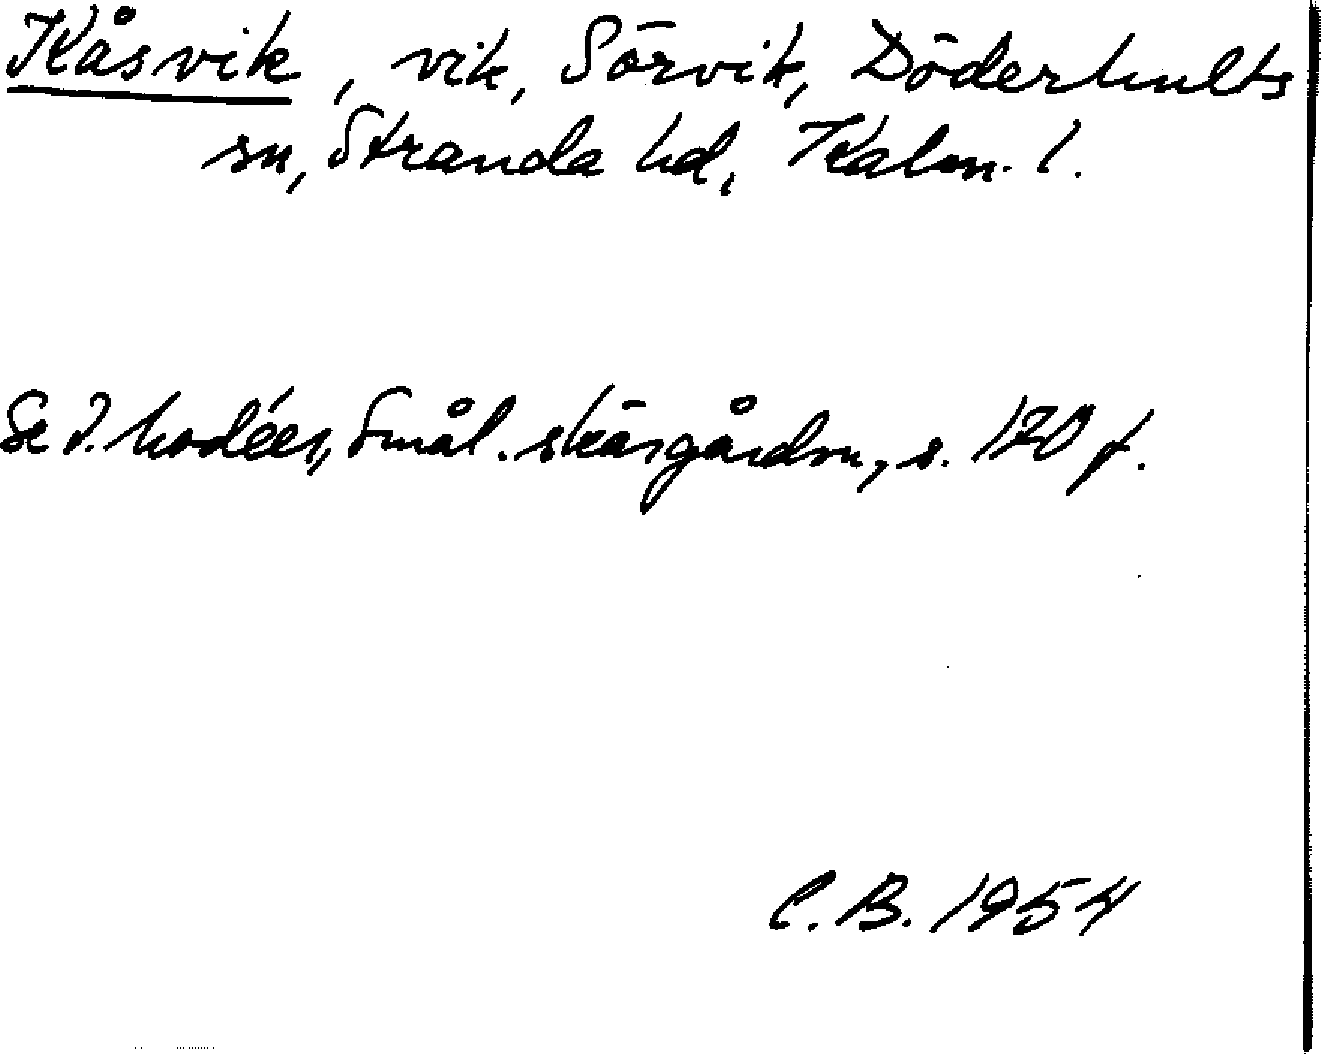 Kåsvik, vik, Sörvik, Döderhults
sn, Stranda hd, Kalm. l.
Se I. Modéer, Smål. skärgårdsn, s. 120 f.
C.B. 1954